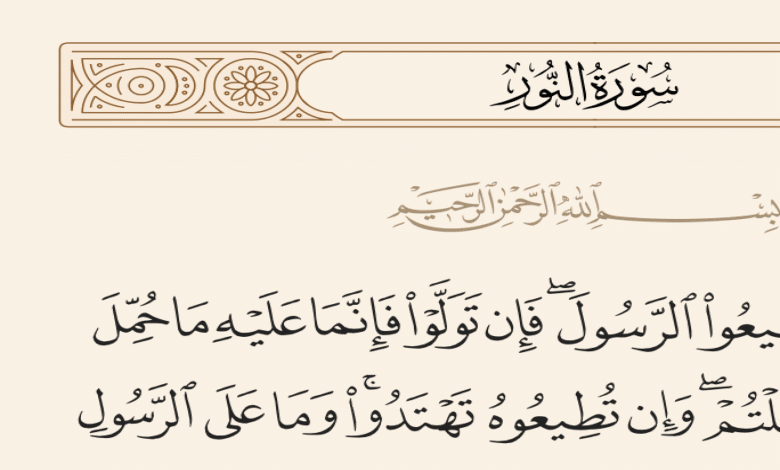 سُورَةُ النُّورِ
بِسْمِ ٱللَّهِ ٱلرَّحْمَٰنِ ٱلرَّحِيمِ
يعُوا۟ ٱلرَّسُولَ ۖ فَإِن تَوَلَّوْا۟ فَإِنَّمَا عَلَيْهِ مَا حُمِّلَ
لْتُمْ ۖ وَإِن تُطِيعُوهُ تَهْتَدُوا۟ ۚ وَمَا عَلَى ٱلرَّسُولِ